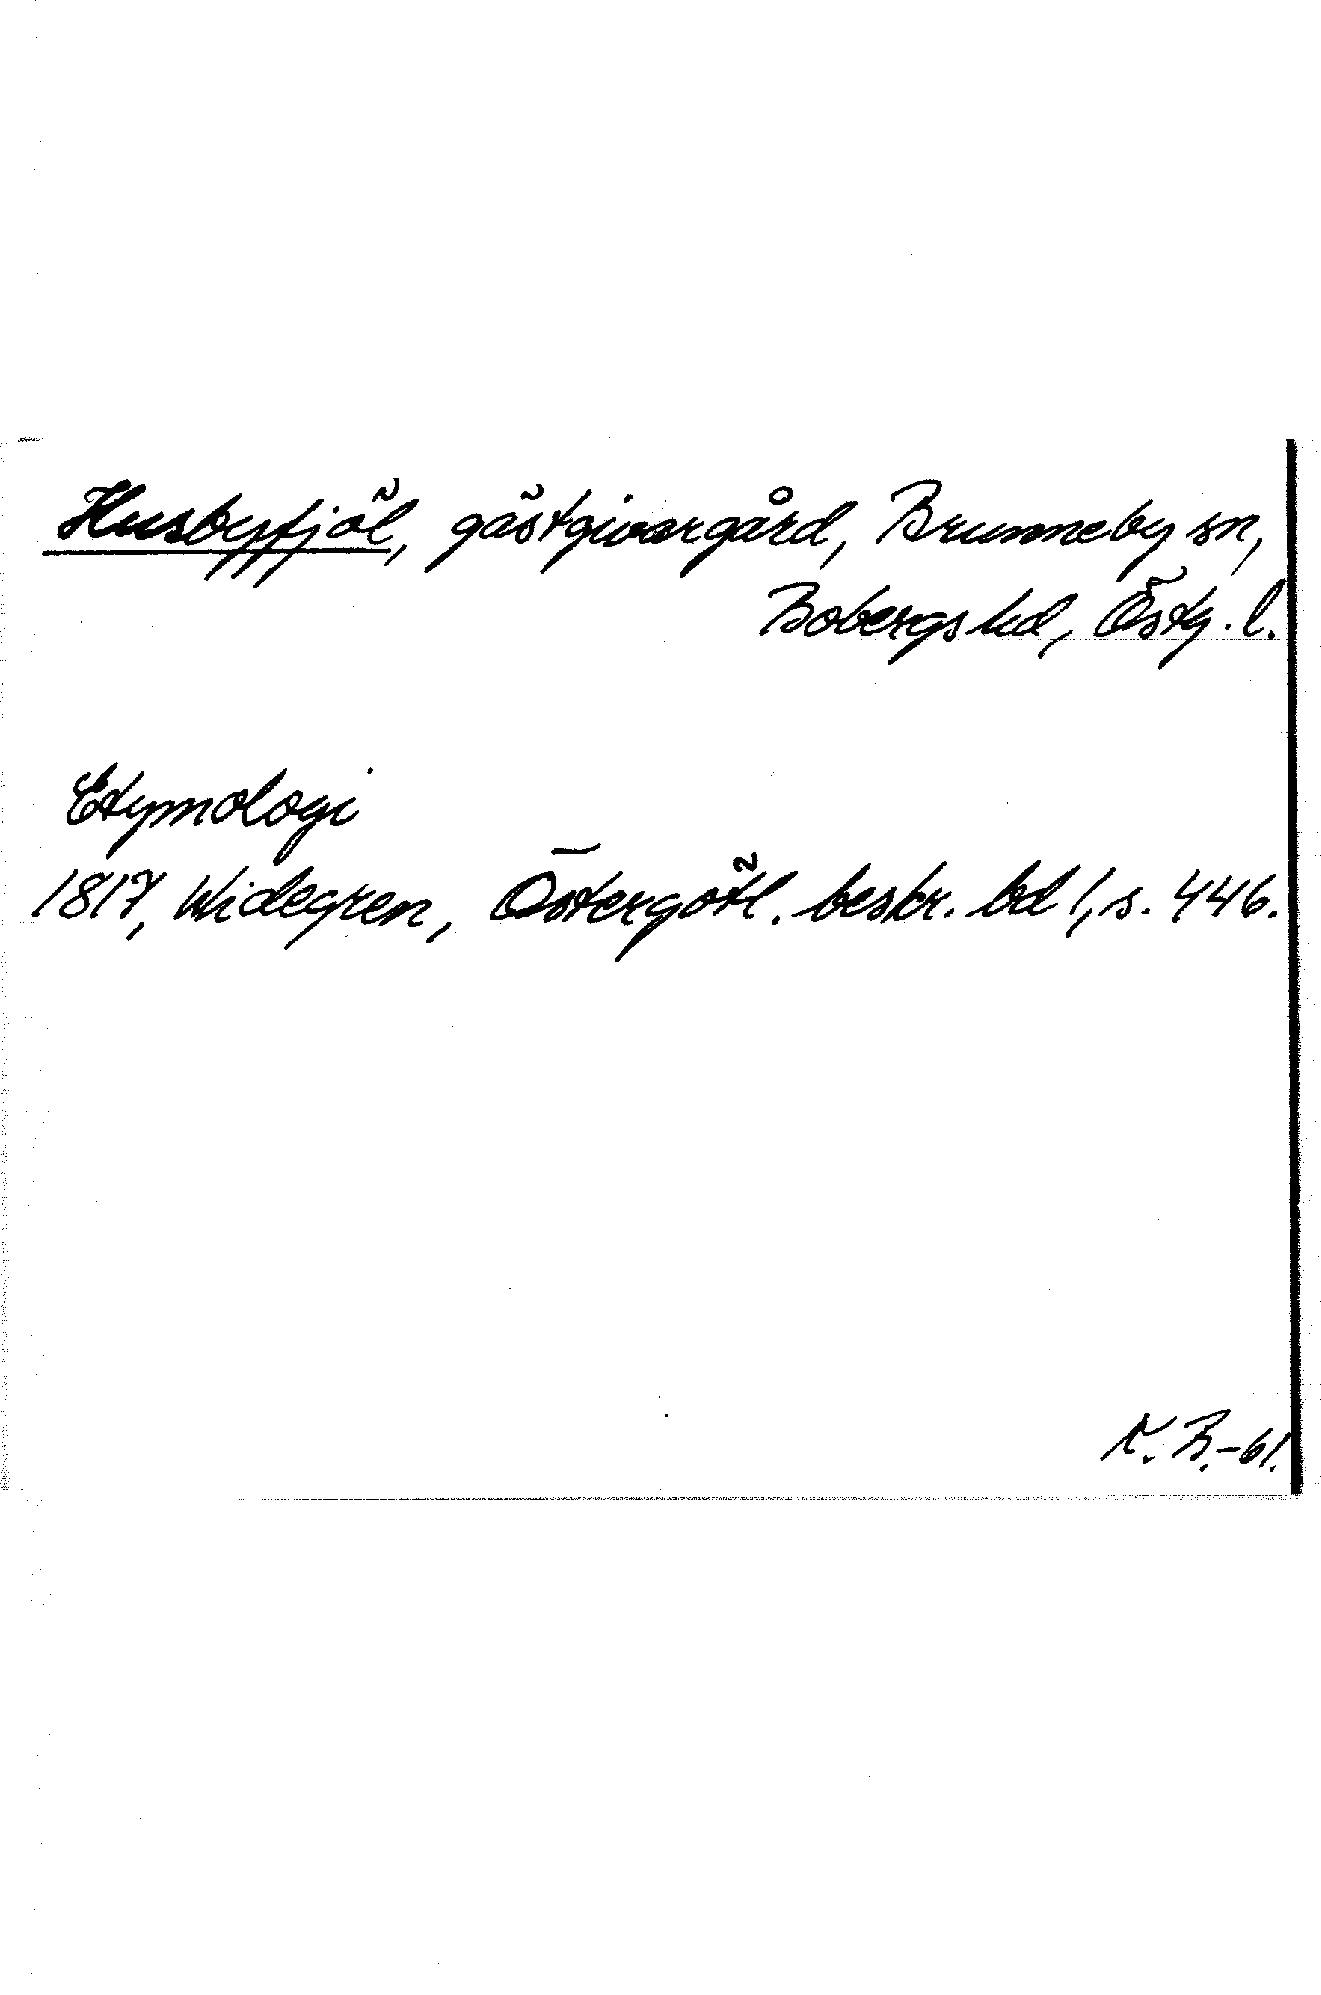 Husbyfjöl, gästgivargård, Brunneby sn,
Bobergs hd, Östg. l.
Etymologi
1817, Widegren, Östergötl. beskr. bd 1, s. 446.
K. B.-61.